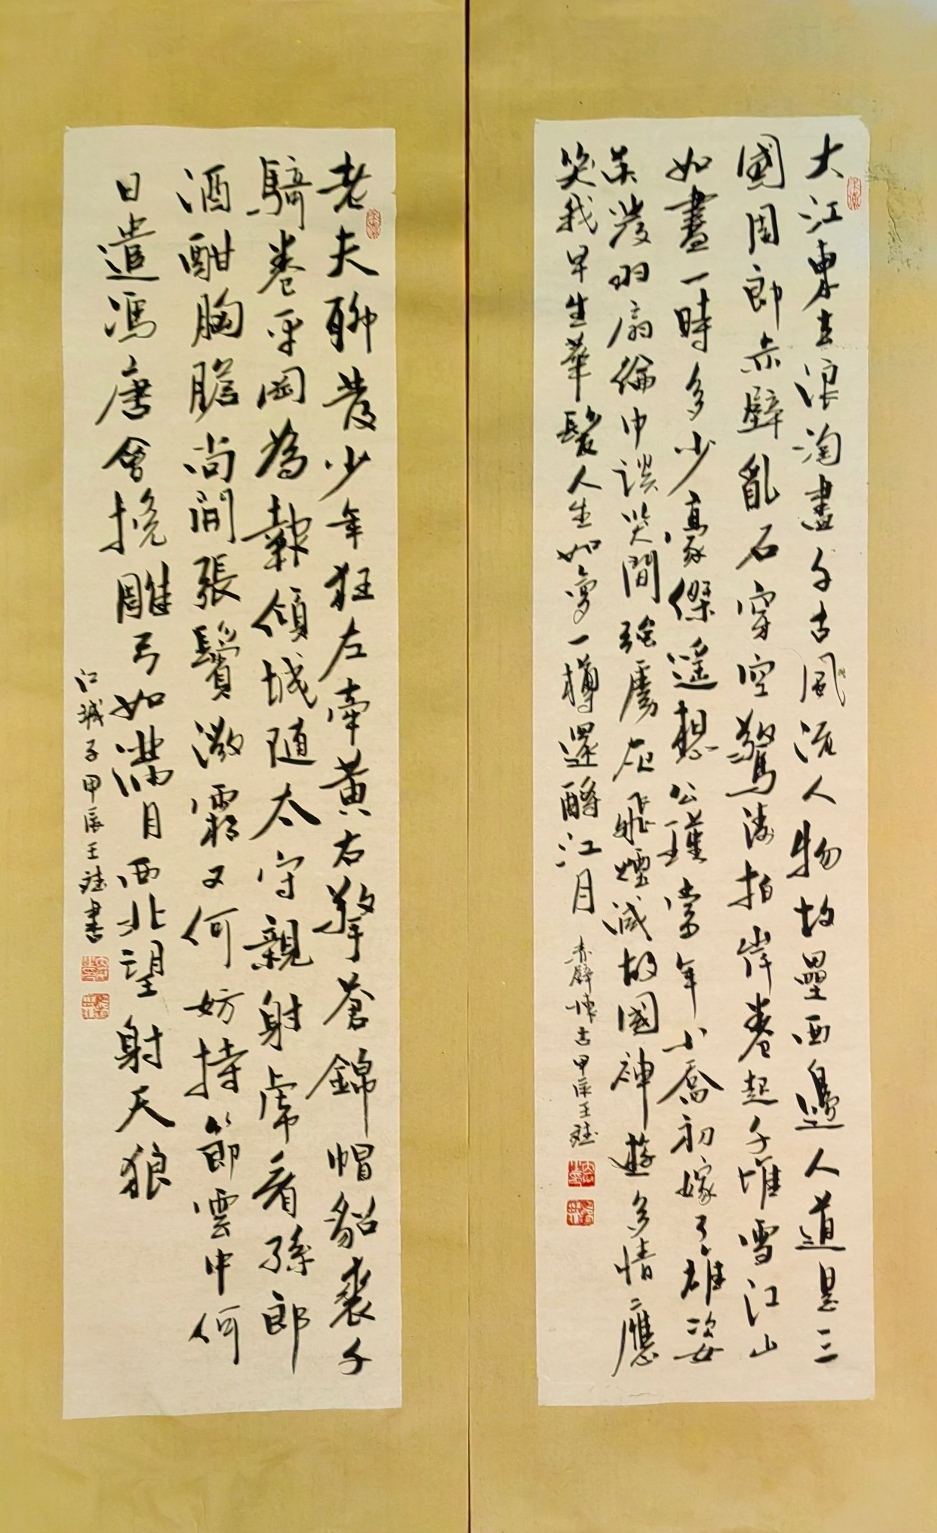 大江東去浪淘盡千古風流人物故壘西邊人道是三
國周郎赤壁亂石穿空驚濤拍岸卷起千堆雪江山
如畫一時多少豪傑遙想公瑾當年小喬初嫁了雄姿
英發羽扇綸巾談笑間強虜灰飛煙滅故國神遊多情應
笑我早生華髮人生如夢一樽還酹江月
赤壁懷古甲辰王
老夫聊發少年狂左牽黃右擎蒼錦帽貂裘千
騎卷平岡為報傾城隨太守親射虎看孫郎
酒酣胸膽尚開張鬢微霜又何妨持節雲中何
日遣馮唐會挽雕弓如滿月西北望射天狼
江城子甲辰王書